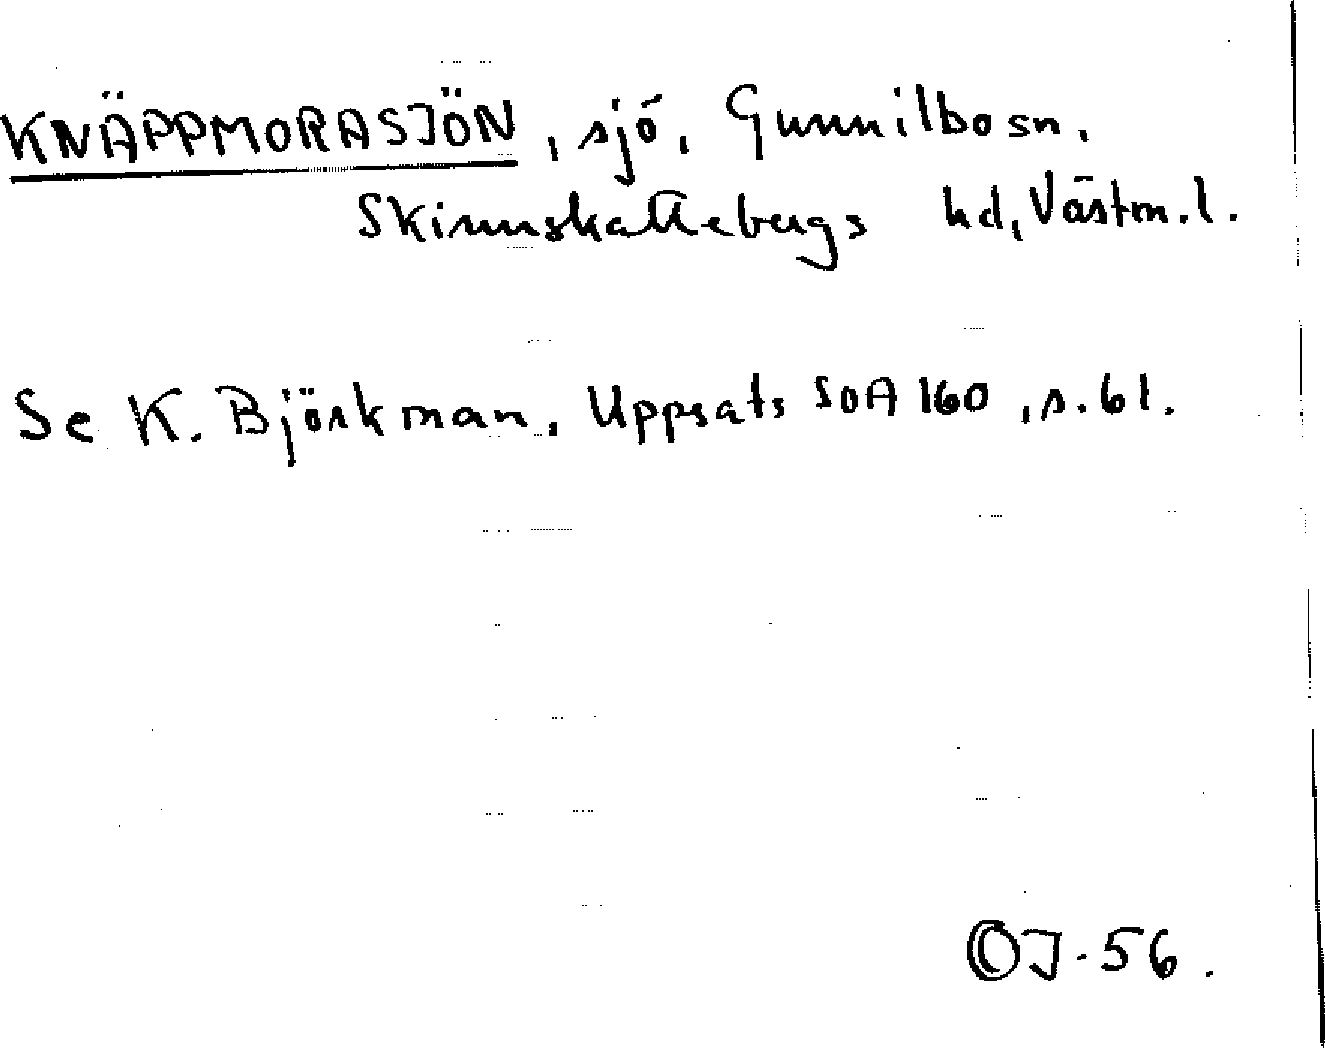 KNÄPPMORASJÖN, sjö, Gunnilbo sn,
Skinnskattebergs hd, Västm. l.
Se K. Björkman, Uppsats SOA 160, s. 61.
OJ-56.